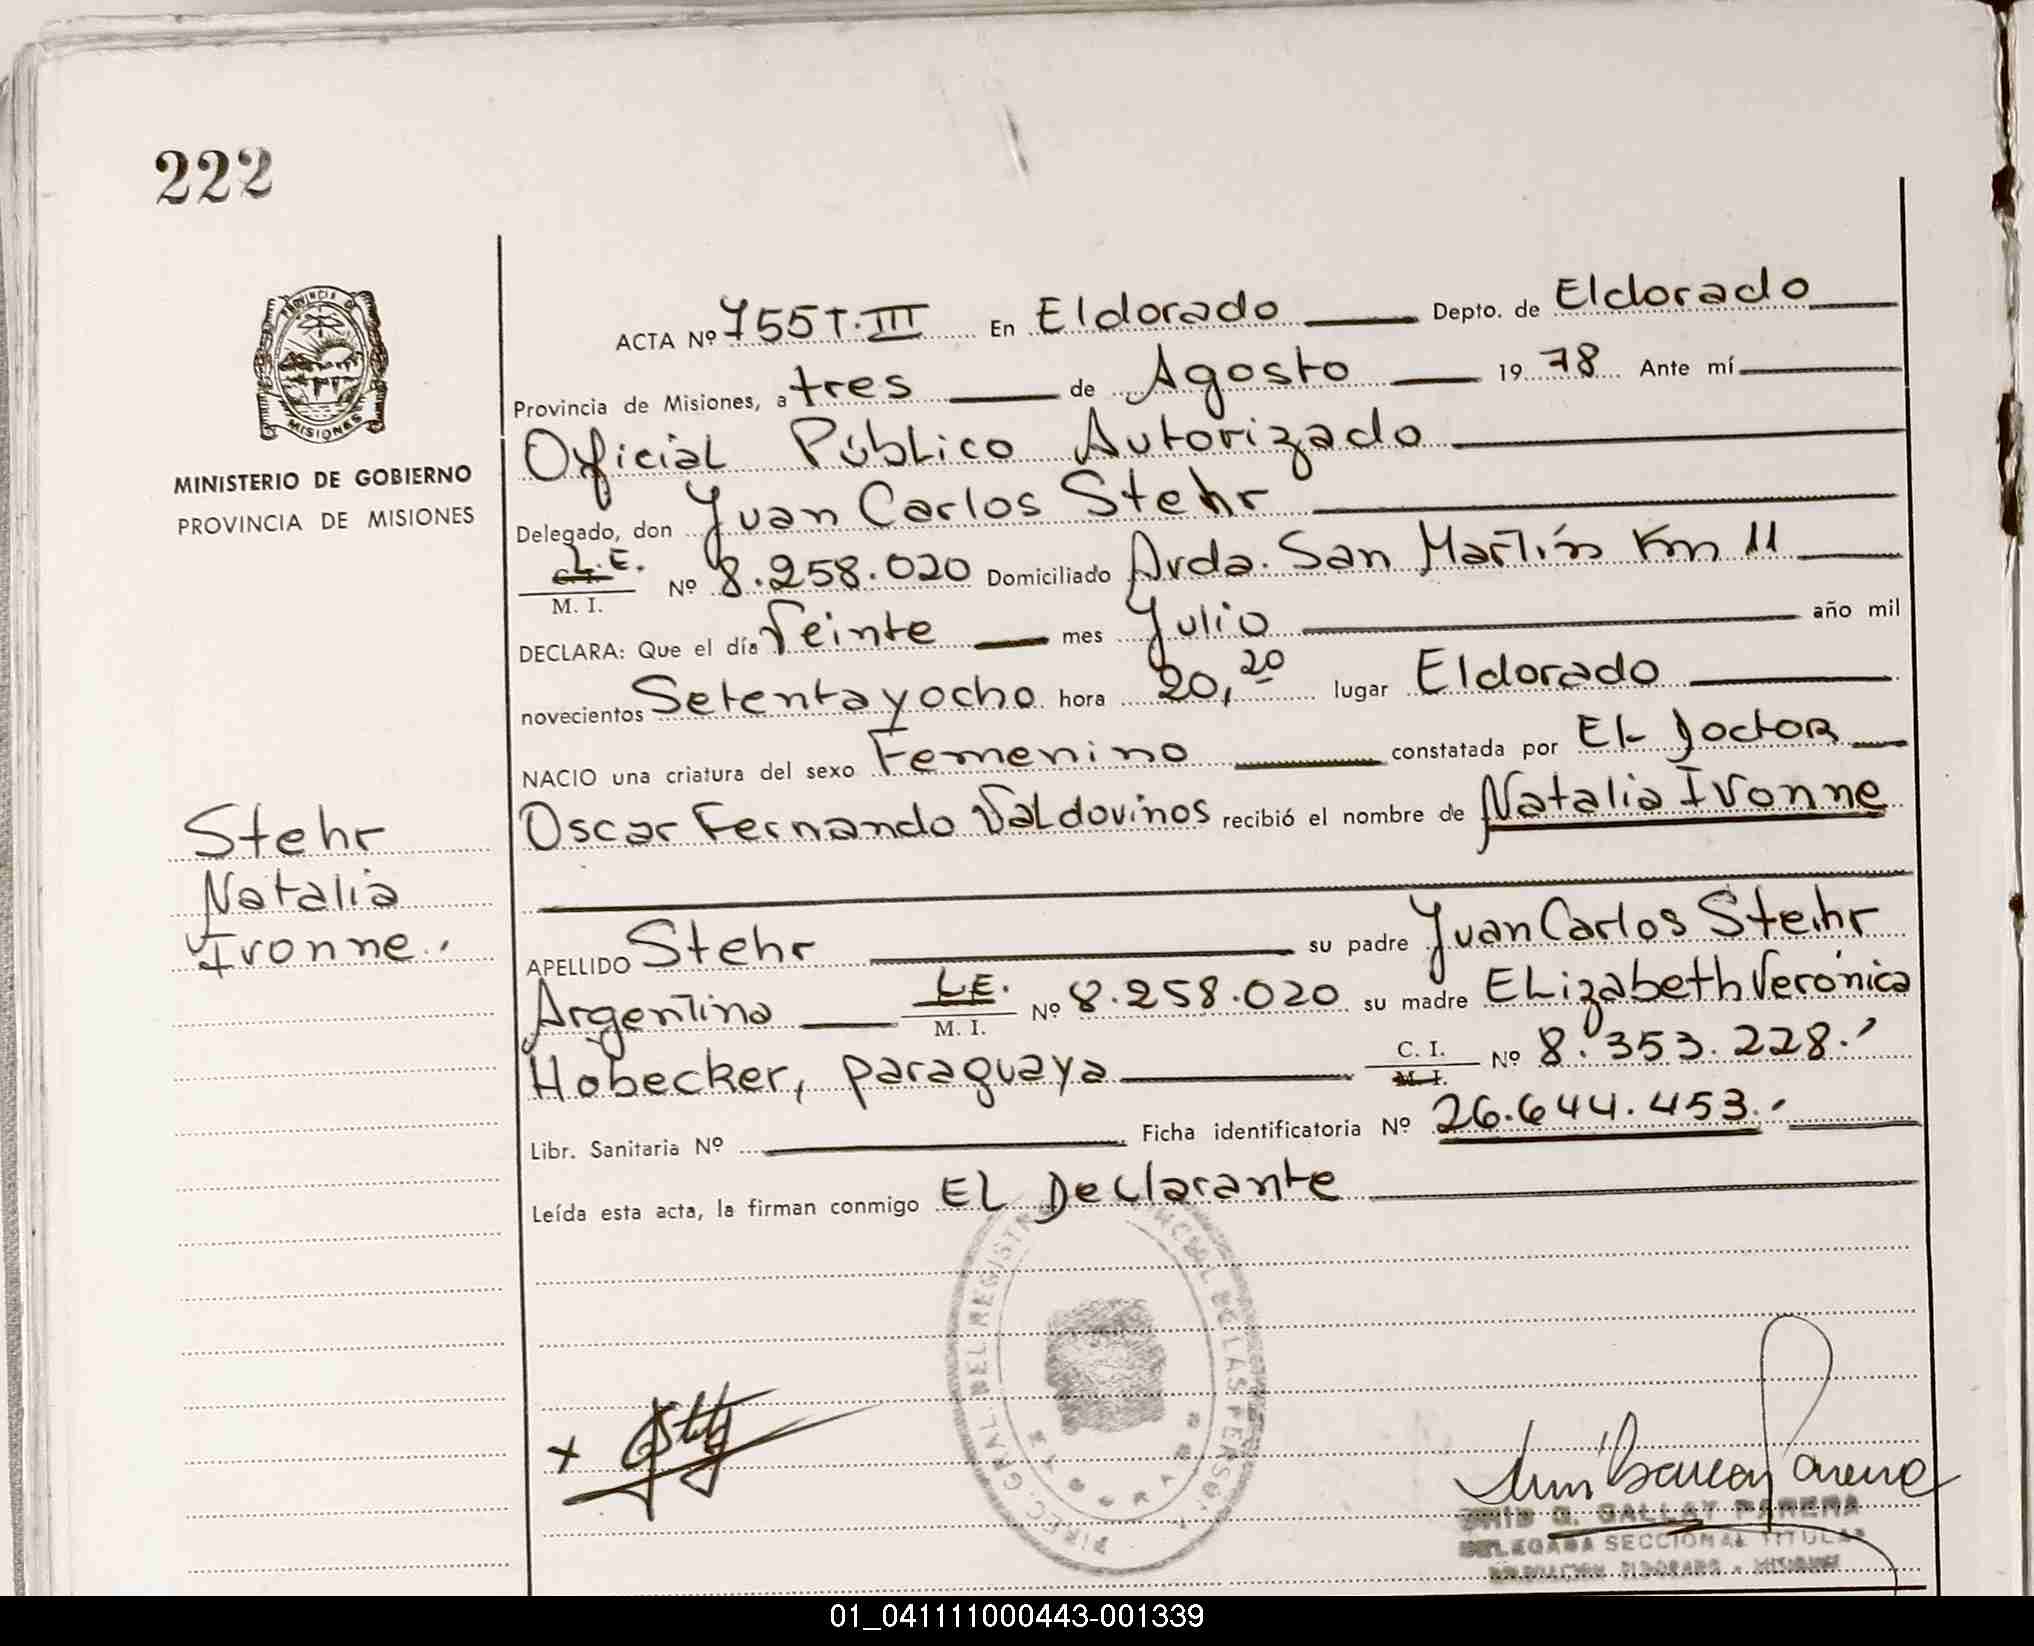 222
PROVINCIA D
MISIONES
MINISTERIO DE GOBIERNO
PROVINCIA DE MISIONES
Stehr
Natalia
Ivonne.
ACTA Nº 755 T. III En Eldorado Depto. de Eldorado
Provincia de Misiones, a tres de Agosto 1978 Ante mí
Oficial Público Autorizado
Delegado, don Juan Carlos Stehr
C.I. L.E.
M. I. Nº 8.258.020 Domiciliado Avda. San Martín Km 11
DECLARA: Que el día Veinte mes Julio año mil
novecientos Setenta y ocho hora 20,20 lugar Eldorado
NACIO una criatura del sexo Femenino constatada por El Doctor
Oscar Fernando Valdovinos recibió el nombre de Natalia Ivonne
APELLIDO Stehr su padre Juan Carlos Stehr
Argentino L.E. M. I. Nº 8.258.020 su madre Elizabeth Verónica
Hobecker, paraguaya C. I. M. I. Nº 8.353.228.
Libr. Sanitaria Nº Ficha identificatoria Nº 26.644.453.
Leída esta acta, la firman conmigo El Declarante
DIREC. GRAL. DEL REGISTRO PROVINCIAL DE LAS PERSO.
ELDORADO
x
G. GALLAY PARERA
DELEGADA SECCIONAL TITULAR
DELEGACION ELDORADO - MISIONES
01_041111000443-001339